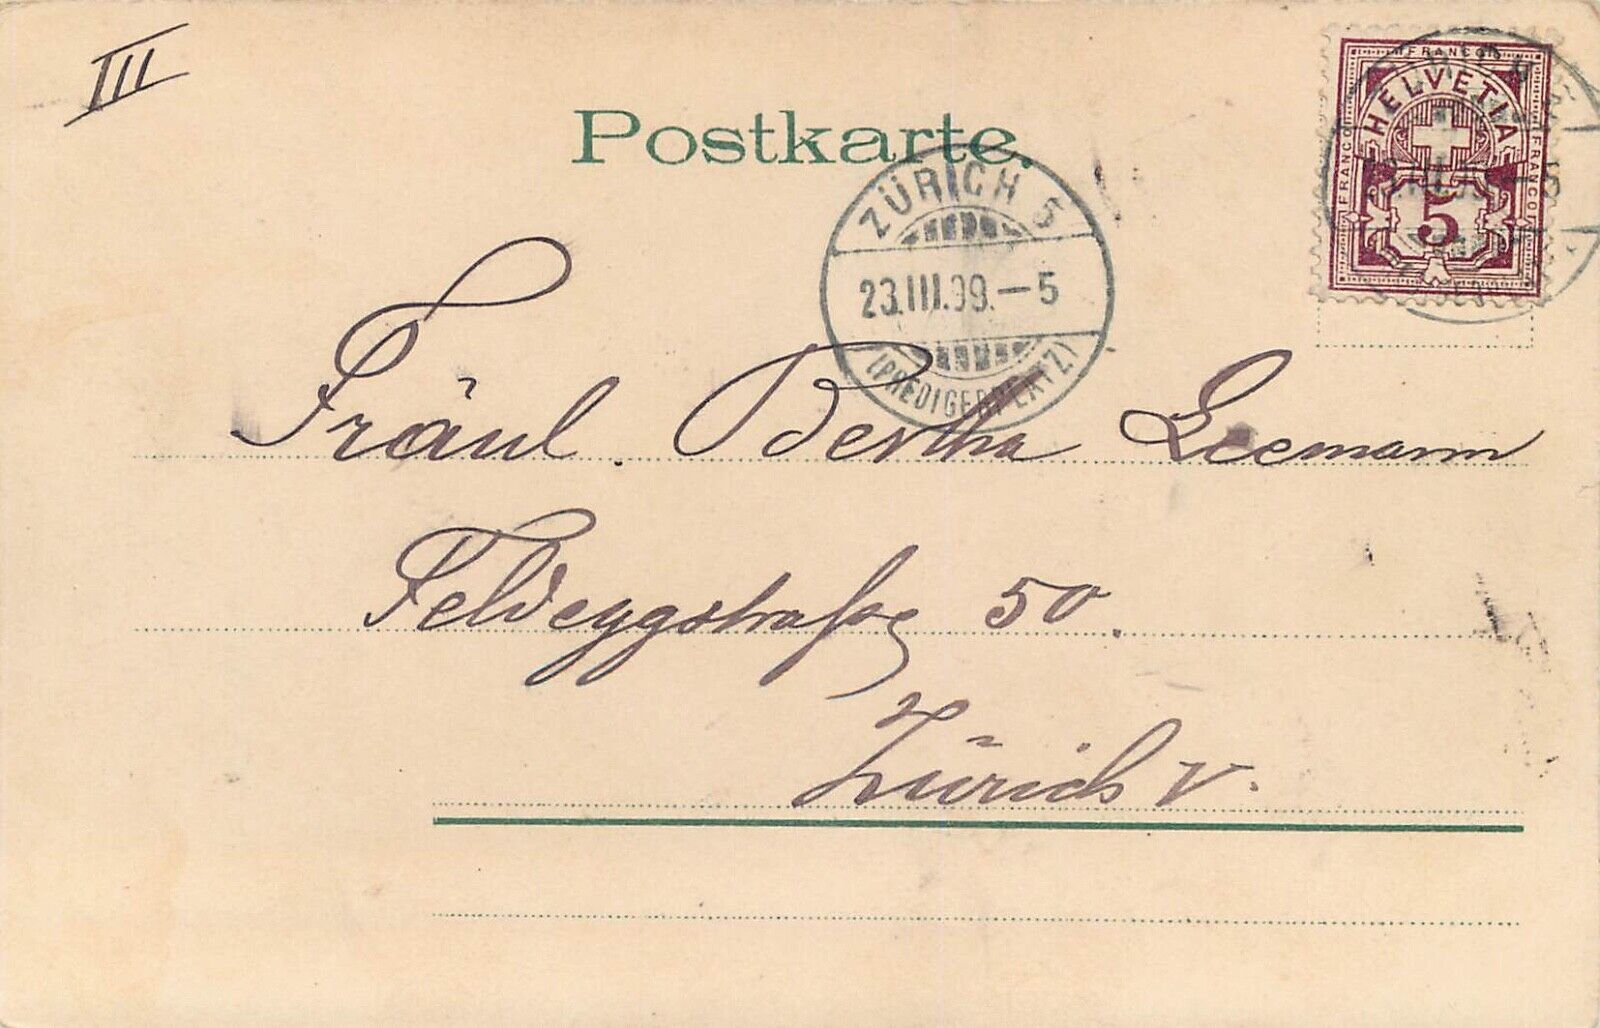 III
Postkarte.
FRANCO
HELVETIA
FRANCO
FRANCO
5
ZÜRICH 5
23.III.99.-5
(PREDIGERPLATZ)
Fräul. Bertha Leemann
Feldeggstraße 50.
Zürich V.